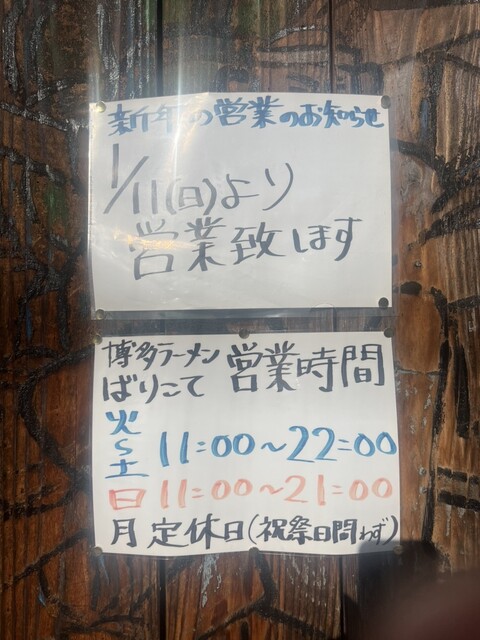 新年の営業のお知らせ
1/11(日)より
営業致します
博多ラーメン
ばりこて 営業時間
火~土 11:00~22:00
日 11:00~21:00
月 定休日(祝祭日問わず)